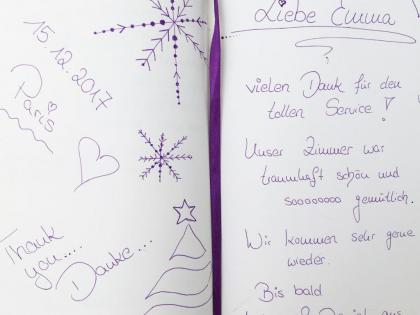 15.12.2017
Paris
Thank
you....
Danke...
Liebe Emma
vielen Dank für den
tollen Service!
Unser Zimmer war
traumhaft schön und
sooooooooo gemütlich.
Wir kommen sehr gerne
wieder.
Bis bald
aus